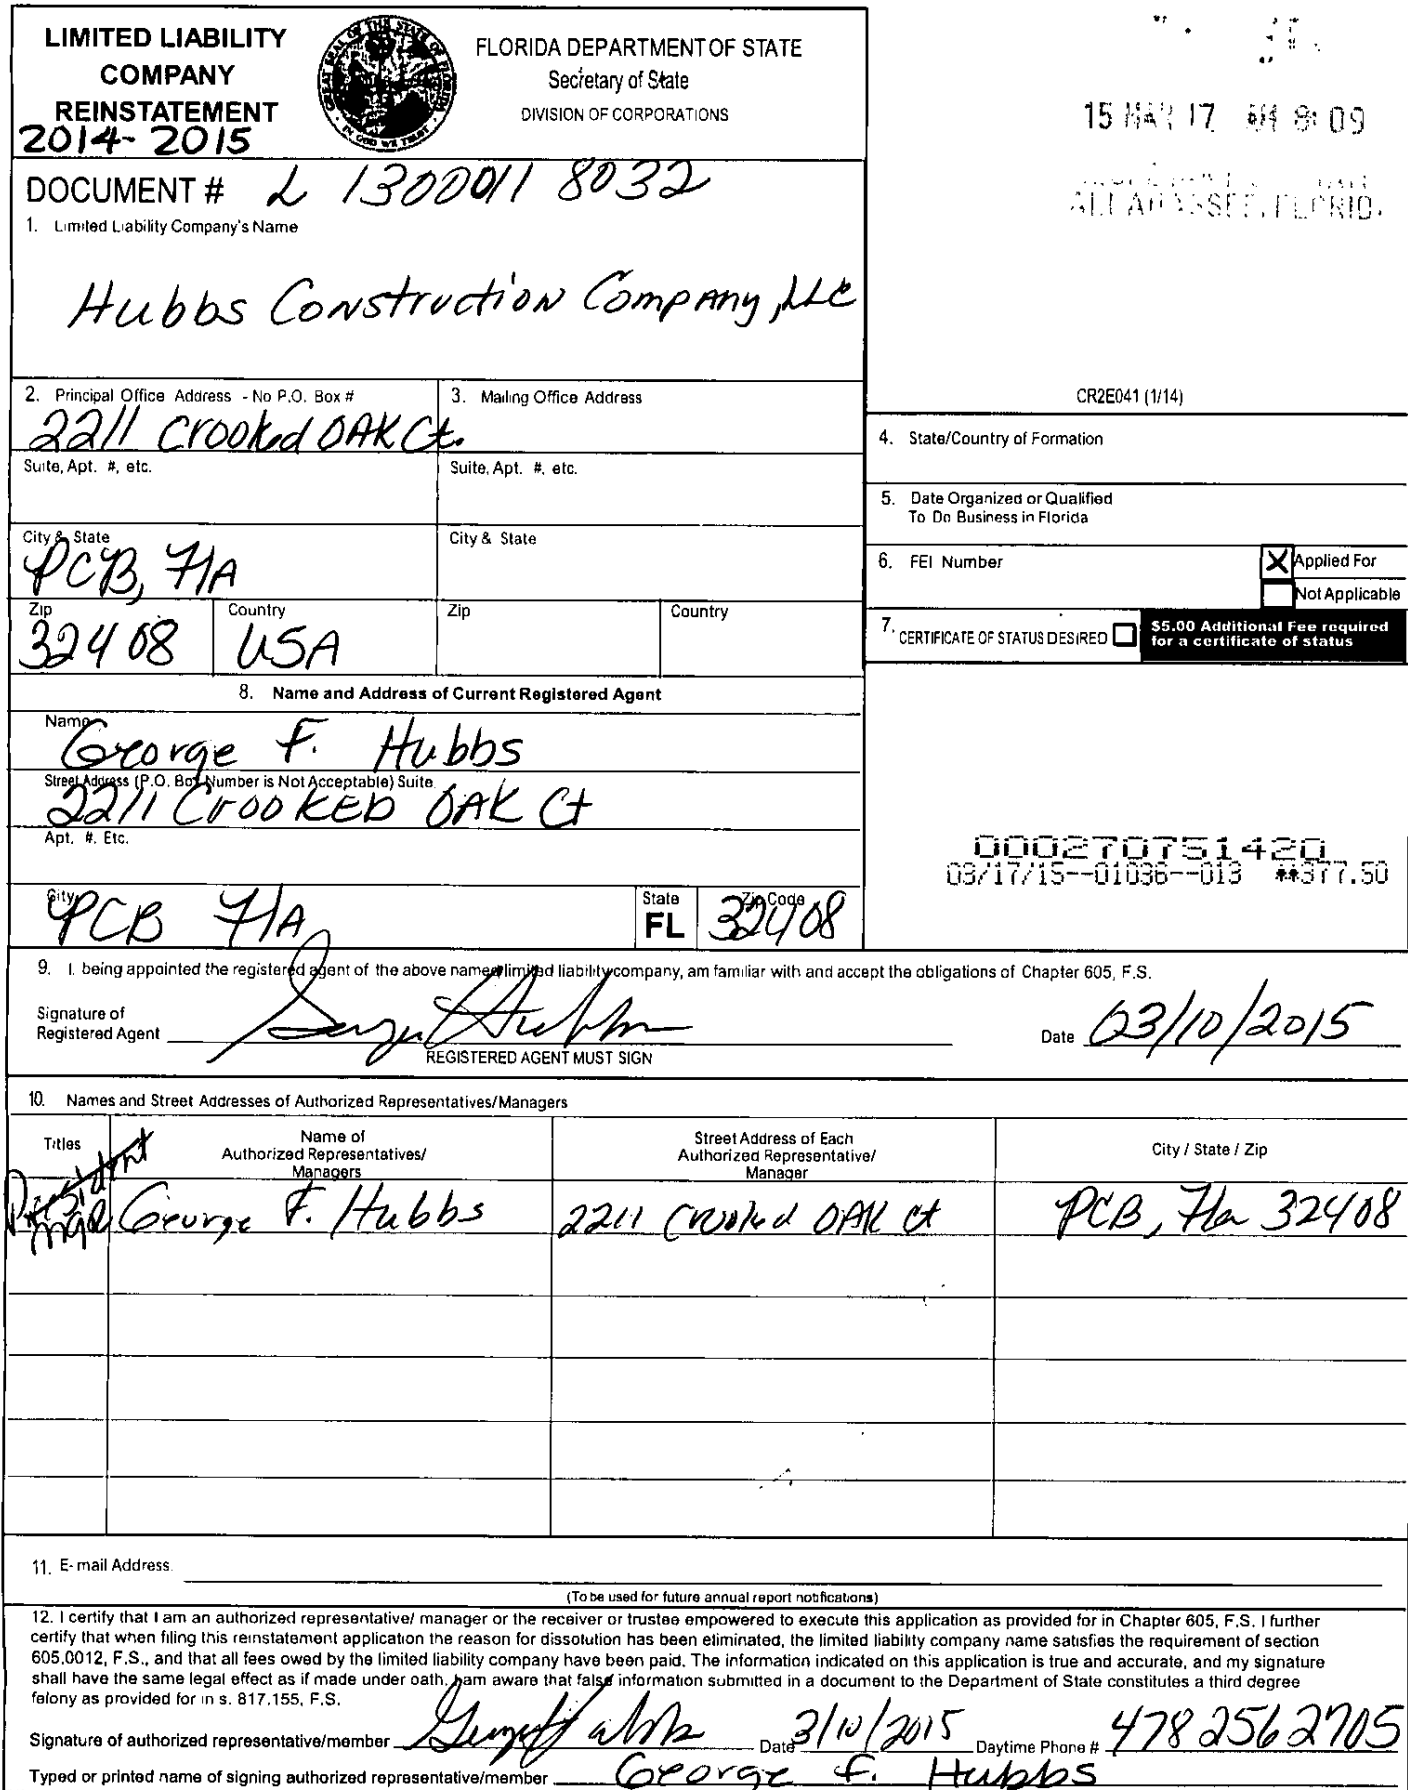 LIMITED LIABILITY
COMPANY
REINSTATEMENT
2014-2015
FLORIDA DEPARTMENT OF STATE
Secretary of State
DIVISION OF CORPORATIONS
15 MAR 17 AM 8:09
DOCUMENT # L 13000118032
1. Limited Liability Company's Name
Hubbs Construction Company, LLC
2. Principal Office Address - No P.O. Box #
2211 Crooked OAK Ct.
3. Mailing Office Address
CR2E041 (1/14)
Suite, Apt. #, etc.
Suite, Apt. #, etc.
4. State/Country of Formation
5. Date Organized or Qualified
To Do Business in Florida
City & State
PCB, FlA
City & State
6. FEI Number
X Applied For
Not Applicable
Zip
32408
Country
USA
Zip
Country
7. CERTIFICATE OF STATUS DESIRED
$5.00 Additional Fee required
for a certificate of status
8. Name and Address of Current Registered Agent
Name
George F. Hubbs
Street Address (P.O. Box Number is Not Acceptable) Suite
2211 CrooKED OAK Ct
Apt. #. Etc.
City
PCB FlA
State
FL
Zip Code
32408
000270751420
03/17/15--01036--013 **377.50
9. I, being appointed the registered agent of the above named limited liability company, am familiar with and accept the obligations of Chapter 605, F.S.
Signature of
Registered Agent
REGISTERED AGENT MUST SIGN
Date 03/10/2015
10. Names and Street Addresses of Authorized Representatives/Managers
Titles
Name of
Authorized Representatives/
Managers
Street Address of Each
Authorized Representative/
Manager
City / State / Zip
President
mgr George F. Hubbs 2211 Crooked OAK ct PCB, Fla 32408
11. E-mail Address.
(To be used for future annual report notifications)
12. I certify that I am an authorized representative/ manager or the receiver or trustee empowered to execute this application as provided for in Chapter 605, F.S. I further
certify that when filing this reinstatement application the reason for dissolution has been eliminated, the limited liability company name satisfies the requirement of section
605.0012, F.S., and that all fees owed by the limited liability company have been paid. The information indicated on this application is true and accurate, and my signature
shall have the same legal effect as if made under oath. I am aware that false information submitted in a document to the Department of State constitutes a third degree
felony as provided for in s. 817.155, F.S.
Signature of authorized representative/member Date 3/10/2015 Daytime Phone # 4782562705
Typed or printed name of signing authorized representative/member George F. Hubbs